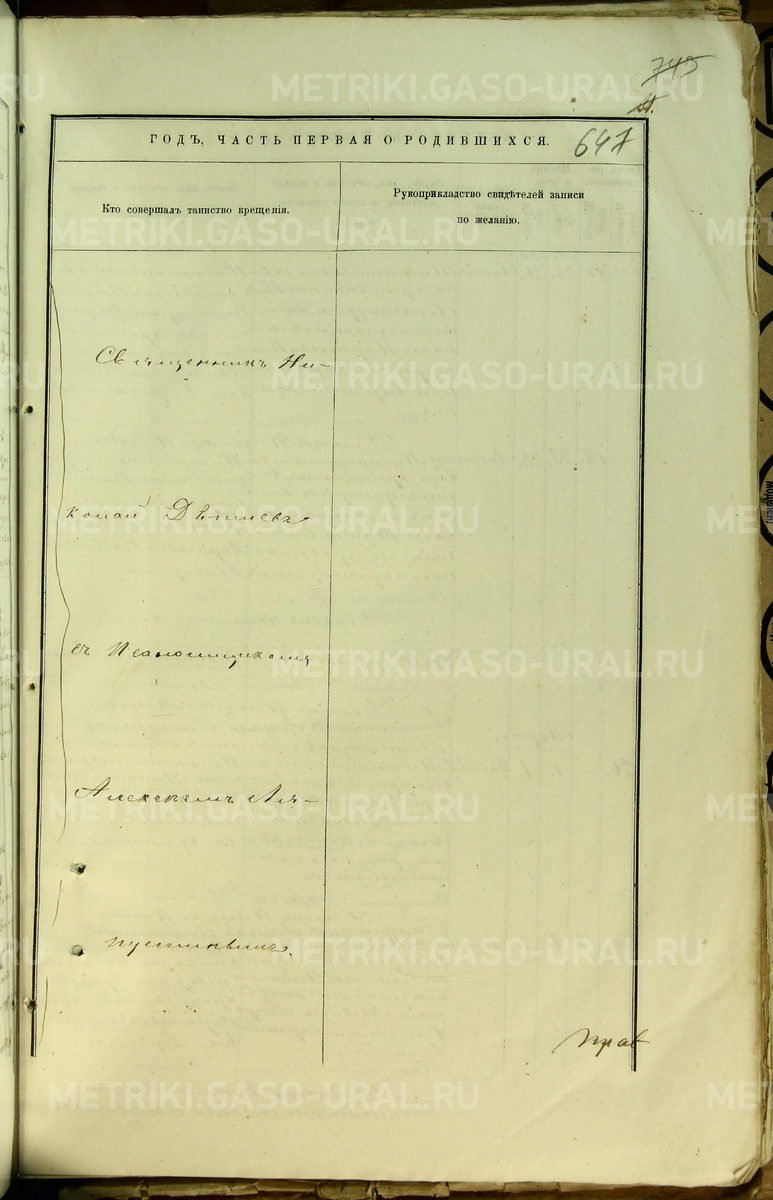 745
647
ГОДЪ, ЧАСТЬ ПЕРВАЯ О РОДИВШИХСЯ.
Кто совершалъ таинство крещенія.
Рукоприкладство свидѣтелей записи
по желанію.
Священникъ Ни-
колай
съ Псаломщикомъ
Алексѣемъ
METRIKI.GASO-URAL.RU